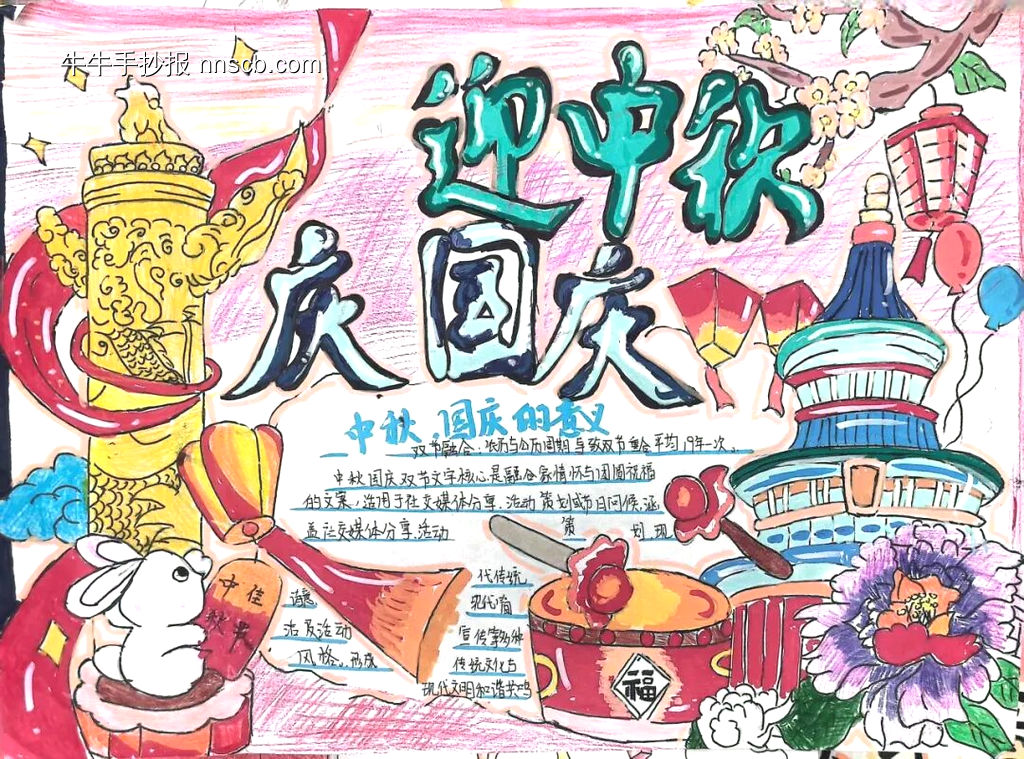 牛牛手抄报 nnscb.com
迎中秋
庆国庆
中秋、国庆的意义
双节融合：农历与公历周期导致双节重合平均19年一次。
中秋国庆双节文字核心是融合家国情怀与团圆祝福
的文案，适用于社交媒体分享、活动策划或节日问候，涵
盖社交媒体分享、活动策划现
代传统
现代简
活及活动
宣传等多种
风格
传统文化与
现代文明和谐共鸣
中佳
秋
福